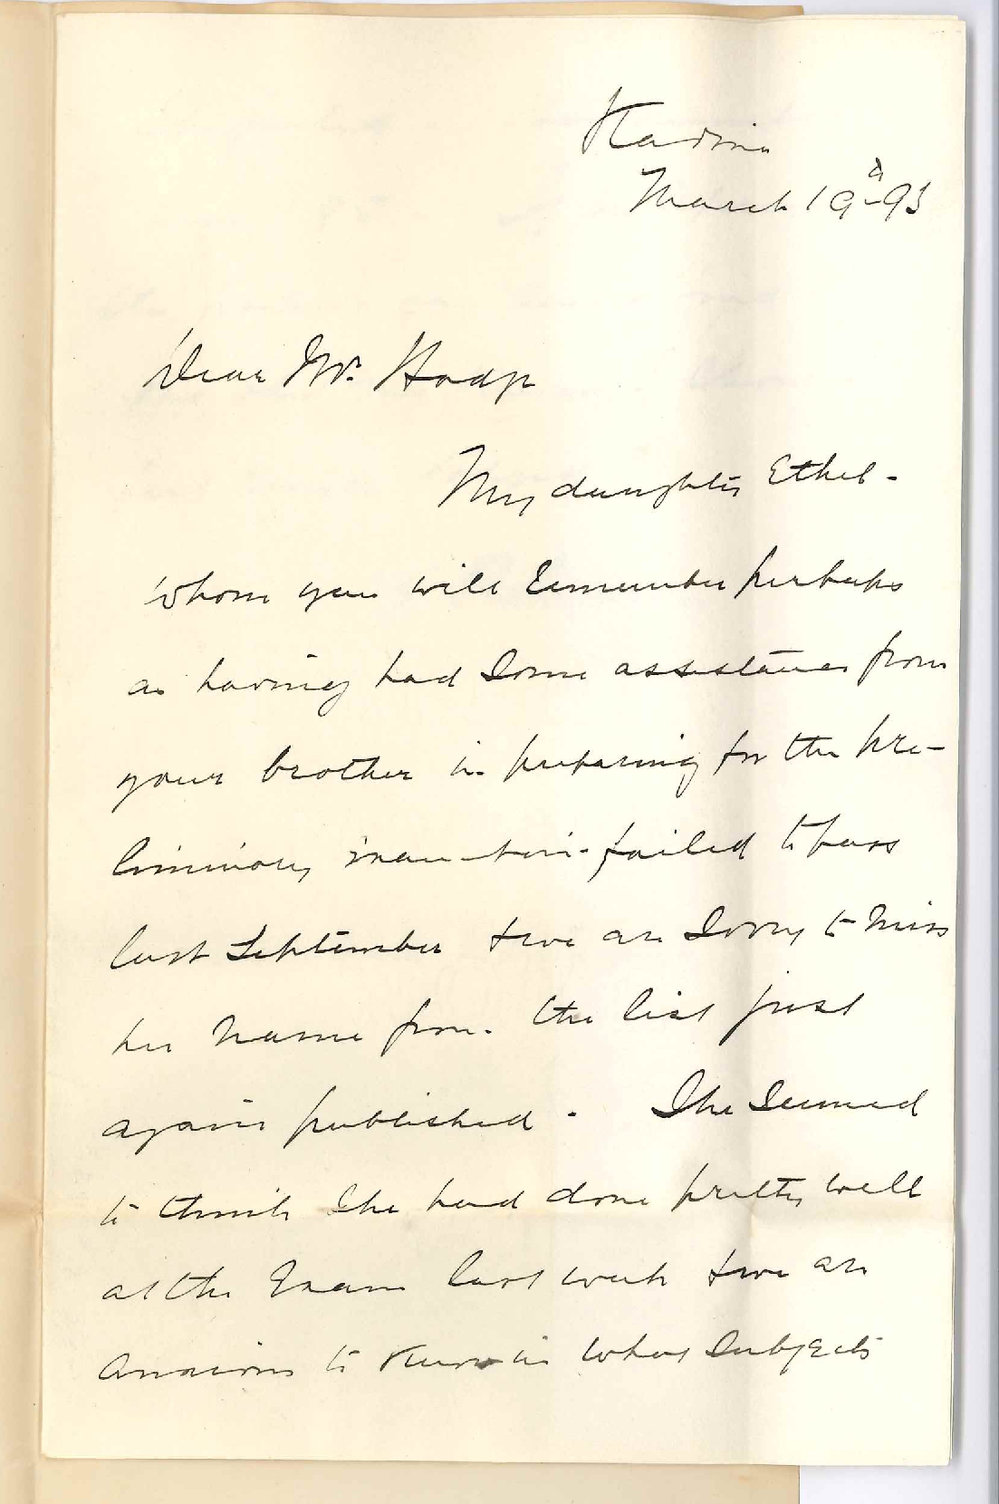 Kadina
March 19th 93
Dear Mr. Hodge
My daughter Ethel -
whom you will remember perhaps
as having had some assistance from
your brother in preparing for the pre-
liminary failed to pass
last September & we are sorry to miss
her name from the list just
again published. She seemed
to think she had done pretty well
at the Exam last week & we are
anxious to know in what subjects